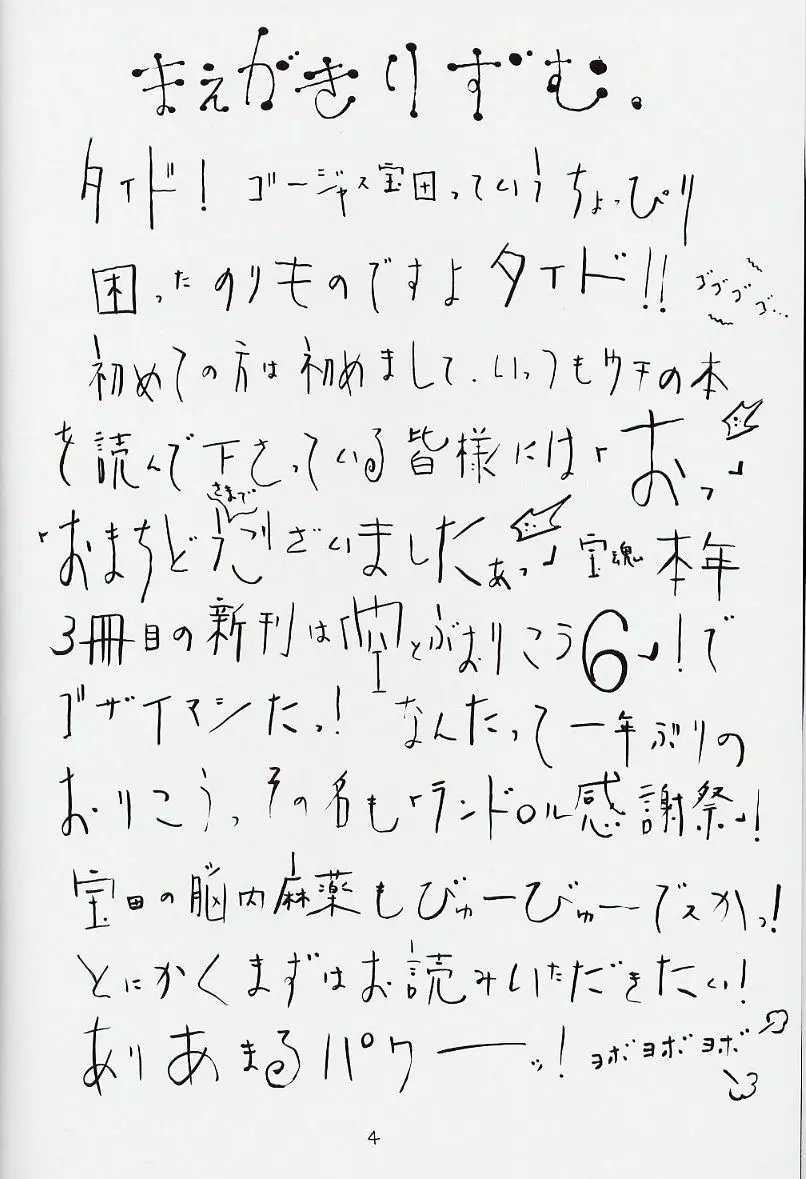 まえがきりずむ。
タイド！ ゴージャス宝田っていうちょっぴり
困ったのりものですよタイド!! ゴゴゴゴ…
初めての方は初めまして、いっつもウチの本
を読んで下さっている皆様には「おっ」
さまで
「おまちどうございましたあっ」宝魂 本年
3冊目の新刊は「空とぶおりこう6」！で
ゴザイマシたっ！ なんたって一年ぶりの
おりこうっ、その名も「ランドロル感謝祭」！
宝田の脳内麻薬もびゅーびゅーでスかっ！
とにかくまずはお読みいただきたい！
ありあまるパワーーッ！ ヨボヨボヨボ
4